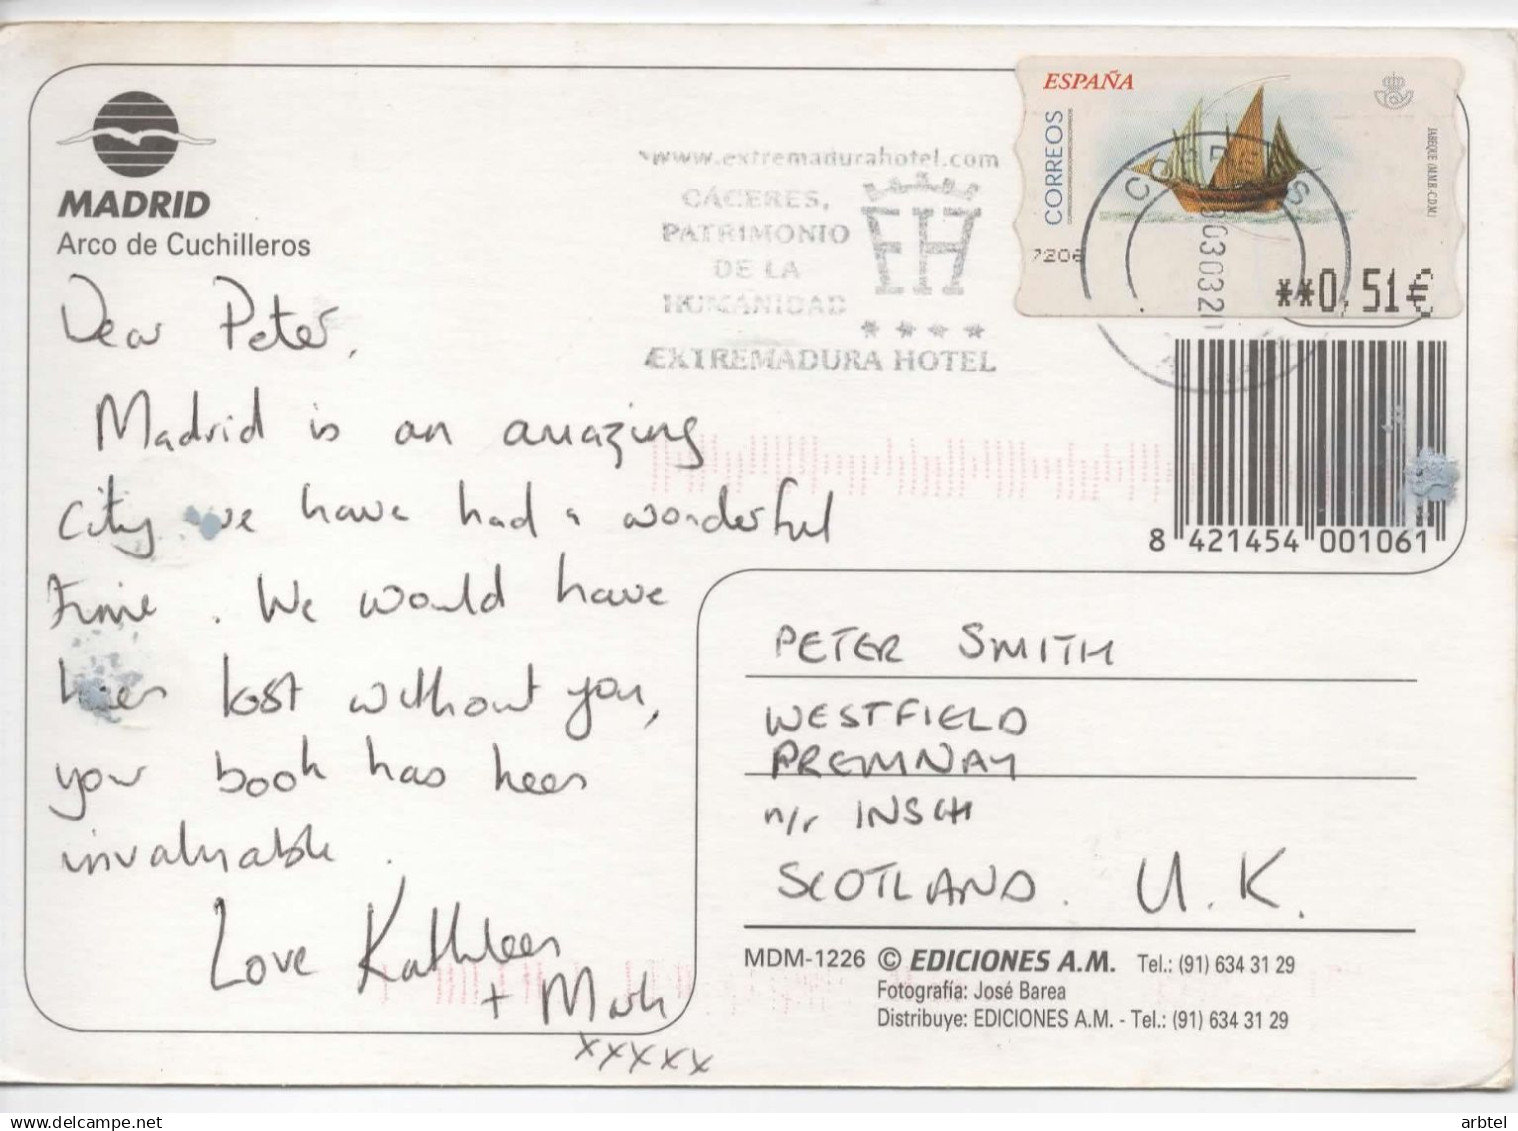 MADRID
Arco de Cuchilleros
Dear Peter,
Madrid is an amazing
city we have had a wonderful
time. We would have
been lost without you,
your book has been
invaluable.
Love Kathleen
+ Mark
xxxxx
www.extremadurahotel.com
CÁCERES,
PATRIMONIO
DE LA
HUMANIDAD
EH
****
EXTREMADURA HOTEL
ESPAÑA
CORREOS
JABEQUE (M.M.B.-C.D.M.)
7206
**0,51€
CORREOS
8 421454 001061
PETER SMITH
WESTFIELD
PREMNAY
n/r INSCH
SCOTLAND. U.K.
MDM-1226 © EDICIONES A.M. Tel.: (91) 634 31 29
Fotografía: José Barea
Distribuye: EDICIONES A.M. - Tel.: (91) 634 31 29
arbtel